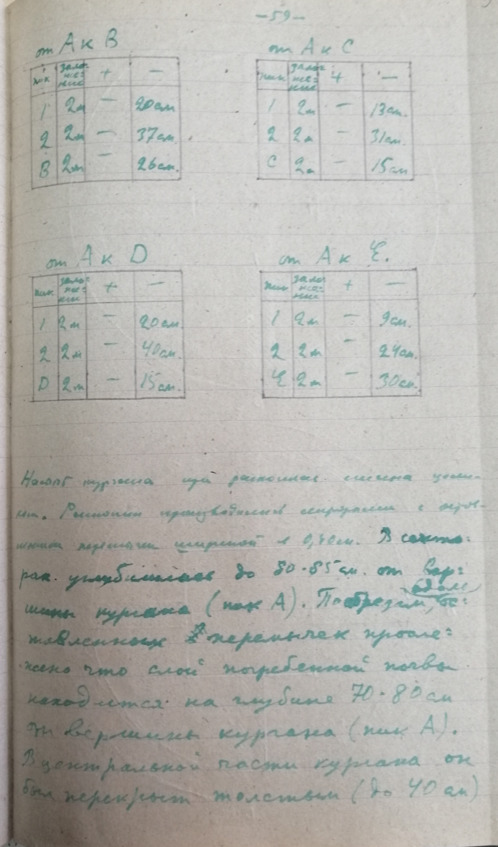 -59-
от А к В
пик зало- же- ние + -
1 2м - 20см.
2 2м - 37см.
В 2м - 26см.
от А к С
пик зало- же- ние + -
1 2м - 13см.
2 2м - 31см.
С 2м - 15см.
от А к D
пик зало- же- ние + -
1 2м - 20см.
2 2м - 40см.
D 2м - 15см.
от А к Е.
пик зало- же- ние + -
1 2м - 9см.
2 2м - 24см.
Е 2м - 30см.
кургана при раскопках
Раскопки производились с
перемычки шириной в 0,40см. В секто-
рах углубились до 80-85см. от вер-
шины кургана (пик А). По обрезам, ос-
тавленных перемычек просле-
жено что слой погребенной почвы
находится на глубине 70-80см
от вершины кургана (пик А).
В центральной части кургана он
был перекрыт толстым (до 40см)